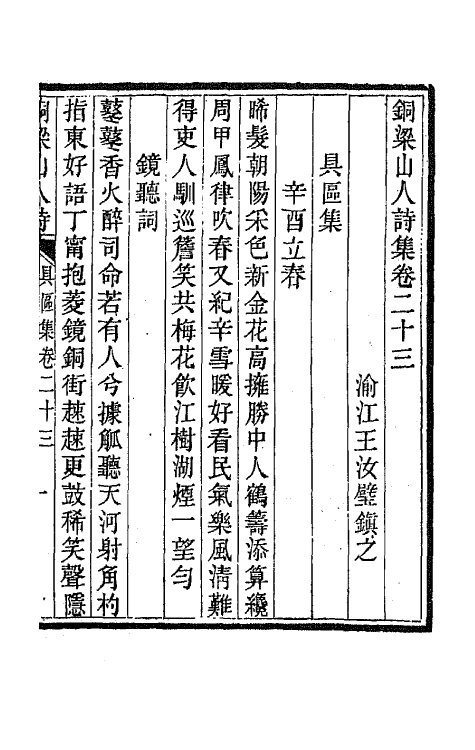 銅梁山人詩集卷二十三
渝江王汝璧鎮之
具區集
辛酉立春
晞髮朝陽采色新金花高擁勝中人鶴籌添算纔
周甲鳳律吹春又紀辛雪暖好看民氣樂風淸難
得吏人馴巡簷笑共梅花飮江樹湖煙一望勻
鏡聽詞
鼕鼕香火醉司命若有人兮據觚聽天河射角杓
指東好語丁甯抱菱鏡銅街趚趚更鼓稀笑聲隱
銅梁山人詩 具區集卷二十三 一